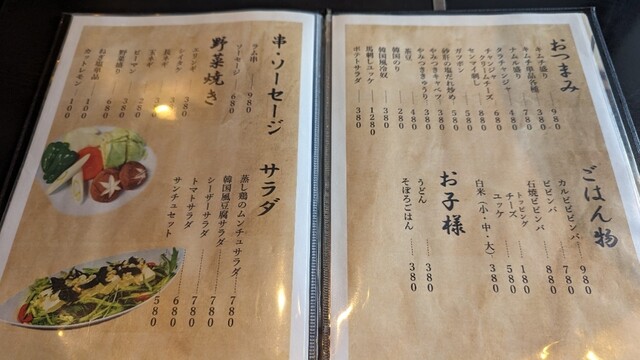 おつまみ
キムチ盛り 980
キムチ単品各種 380
ナムル盛り 780
タラチャンジャ 480
チャンジャクリームチーズ 680
センマイ刺し 880
ガツポン 580
砂肝の塩だれ炒め 580
やみつきキャベツ 380
やみつききゅうり 380
葉豆 480
韓国のり 280
韓国風冷奴 380
馬刺しユッケ 1280
ポテトサラダ 380
ごはん物
カルビビビンバ 980
ビビンバ 780
石焼ビビンバ 880
トッピング
チーズ 180
ユッケ 580
白米(小・中・大) 380
お子様
うどん 380
そぼろごはん 380
串・ソーセージ
ラム串 980
ソーセージ 680
野菜焼き
エリンギ 380
シイタケ
長ネギ
玉ネギ
ピーマン
野菜盛り
ねぎ塩単品 100
カットレモン 100
サラダ
蒸し鶏のムンチュサラダ 780
韓国風豆腐サラダ 780
シーザーサラダ 780
トマトサラダ 680
サンチュセット 580